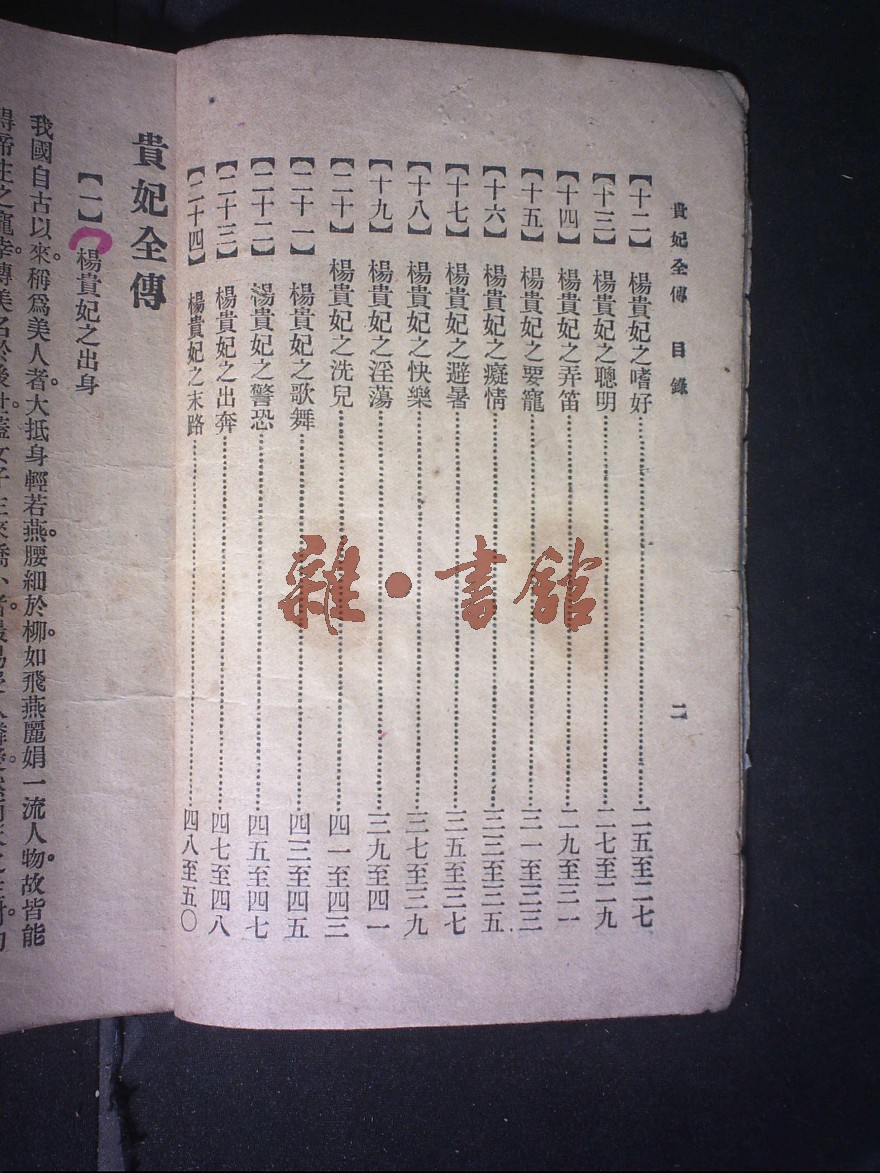 貴妃全傳 目錄 二
【十二】 楊貴妃之嗜好 二五至二七
【十三】 楊貴妃之聰明 二七至二九
【十四】 楊貴妃之弄笛 二九至三一
【十五】 楊貴妃之要寵 三一至三三
【十六】 楊貴妃之癡情 三三至三五
【十七】 楊貴妃之避暑 三五至三七
【十八】 楊貴妃之快樂 三七至三九
【十九】 楊貴妃之淫蕩 三九至四一
【二十】 楊貴妃之洗兒 四一至四三
【二十一】 楊貴妃之歌舞 四三至四五
【二十二】 楊貴妃之警恐 四五至四七
【二十三】 楊貴妃之出奔 四七至四八
【二十四】 楊貴妃之末路 四八至五〇
雜·書館
貴妃全傳
【一】 楊貴妃之出身
我國自古以來。稱爲美人者。大抵身輕若燕。腰細於柳。如飛燕麗娟一流人物。故皆能